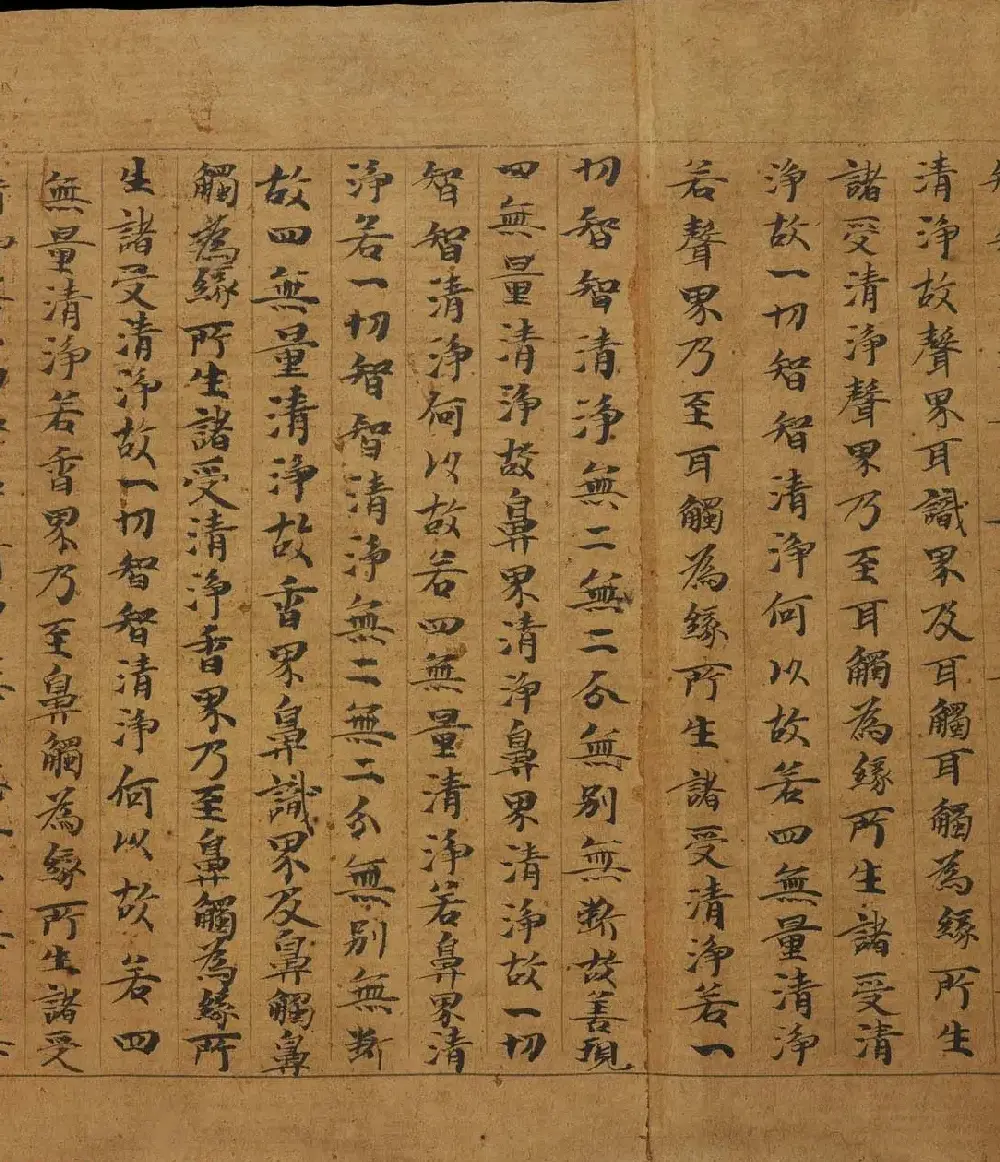 清淨故聲界耳識界及耳觸耳觸為緣所生
諸受清淨聲界乃至耳觸為緣所生諸受清
淨故一切智智清淨何以故若四無量清淨
若聲界乃至耳觸為緣所生諸受清淨若一
切智智清淨無二無二分無別無斷故善現
四無量清淨故鼻界清淨鼻界清淨故一切
智智清淨何以故若四無量清淨若鼻界清
淨若一切智智清淨無二無二分無別無斷
故四無量清淨故香界鼻識界及鼻觸鼻
觸為緣所生諸受清淨香界乃至鼻觸為緣所
生諸受清淨故一切智智清淨何以故若四
無量清淨若香界乃至鼻觸為緣所生諸受